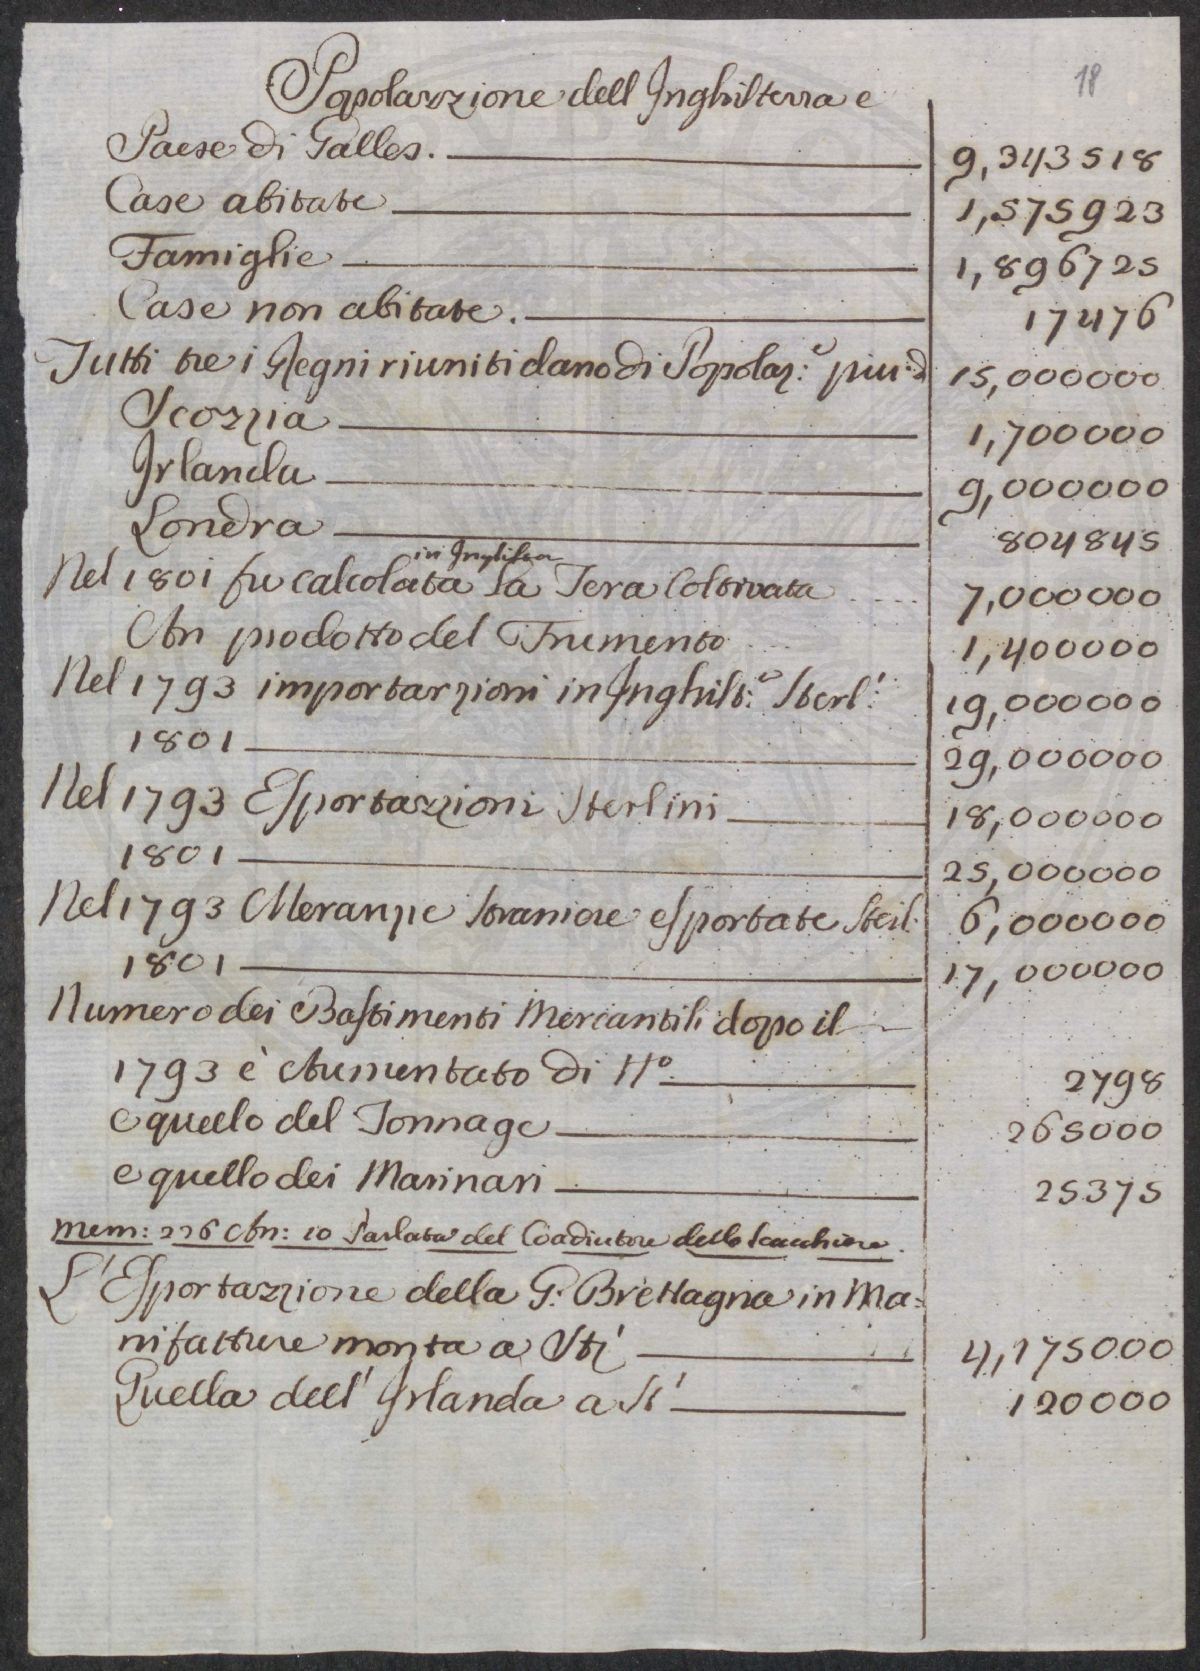 18
Popolazzione dell Inghilterra e
Paese di Galles. 9,343518
Case abitate 1,575923
Famiglie 1,896725
Case non abitate. 17476
Tutti tre i Regni riuniti dano di Popolaz:e piu d 15,000000
Scozzia 1,700000
Irlanda 9,000000
Londra 804845
in Inghilterra
Nel 1801 fu calcolata la Tera Coltivata 7,000000
An prodotto del Frumento 1,400000
Nel 1793 importazzioni in Inghilt:e Sterl: 19,000000
1801 29,000000
Nel 1793 Esportazzioni Sterlini 18,000000
1801 25,000000
Nel 1793 Meranzie straniere esportate Sterl: 6,000000
1801 17,000000
Numero dei Bastimenti Mercantili dopo il
1793 è Aumentato di No. 2798
e quello del Tonnage 265000
e quello dei Marinari 25375
Mem: 226 An: 10 Parlata del Coadiutore dello Scacchiere.
L'Esportazzione della G: Brettagna in Ma=
nifatture monta a 4,175000
Quella dell' Irlanda a 120000